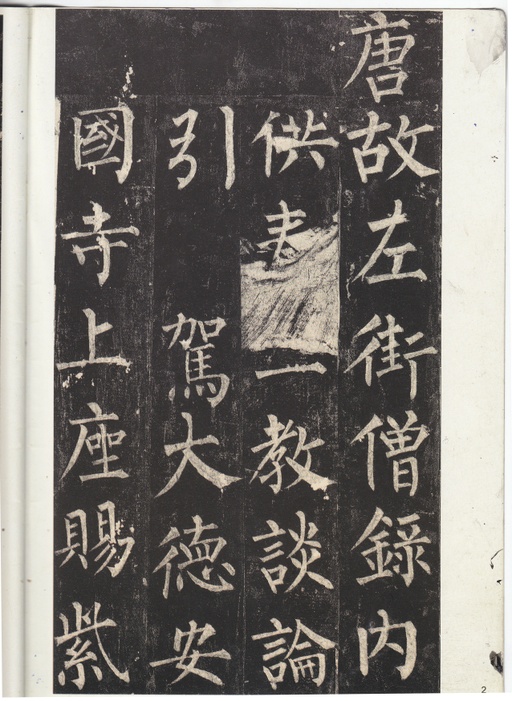 唐故左街僧錄内
供教談論
引駕大德安
國寺上座賜紫
2